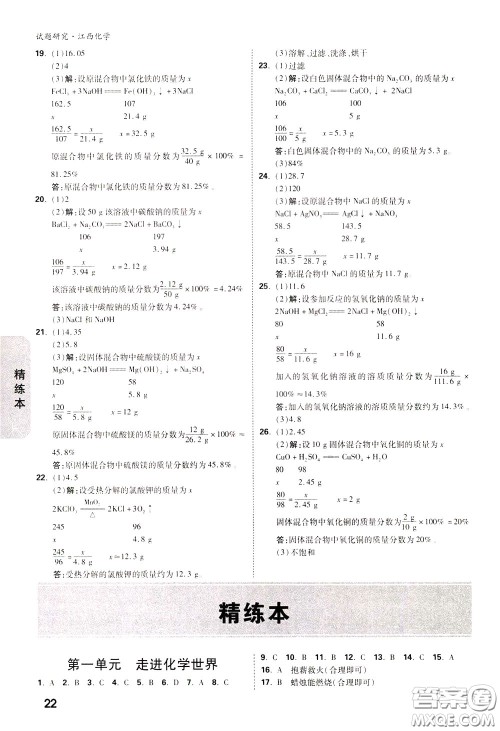 试题研究·江西化学
19. (1)16.05
(2)4
(3)解:设原混合物中氯化铁的质量为 x
FeCl₃ + 3NaOH === Fe(OH)₃↓ + 3NaCl
162.5 107
x 21.4 g
162.5/107 = x/21.4 g x = 32.5 g
原混合物中氯化铁的质量分数为 32.5 g/40 g × 100% =
81.25%
答:原混合物中氯化铁的质量分数为 81.25%.
20. (1)2
(2)解:设 50 g 该溶液中碳酸钠的质量为 x
BaCl₂ + Na₂CO₃ === 2NaCl + BaCO₃↓
106 197
x 3.94 g
106/197 = x/3.94 g x = 2.12 g
该溶液中碳酸钠的质量分数为 2.12 g/50 g × 100% = 4.24%
答:该溶液中碳酸钠的质量分数为 4.24%.
(3)NaCl 和 NaOH
21. (1)4.35
(2)5.8
(3)解:设固体混合物中硫酸镁的质量为 x
MgSO₄ + 2NaOH === Mg(OH)₂↓ + Na₂SO₄
120 58
x 5.8 g
120/58 = x/5.8 g x = 12 g
原固体混合物中硫酸镁的质量分数为 12 g/26.2 g × 100% ≈
45.8%
答:原固体混合物中硫酸镁的质量分数约为 45.8%.
22. (1)4.8
(2)解:设受热分解的氯酸钾的质量为 x
2KClO₃ =MnO₂/△= 2KCl + 3O₂↑
245 96
x 4.8 g
245/96 = x/4.8 g x ≈ 12.3 g
答:受热分解的氯酸钾的质量约为 12.3 g.
(3)溶解、过滤、洗涤、烘干
23. (1)过滤
(2)解:设白色固体混合物中的 Na₂CO₃ 的质量为 x
Na₂CO₃ + CaCl₂ === CaCO₃↓ + 2NaCl
106 100
x 5 g
106/100 = x/5 g x = 5.3 g
答:白色固体混合物中的 Na₂CO₃ 的质量为 5.3 g.
(3)84%
24. (1)28.7
(2)120
(3)解:设原混合物中 NaCl 的质量为 x
NaCl + AgNO₃ === AgCl↓ + NaNO₃
58.5 143.5
x 28.7 g
58.5/143.5 = x/28.7 g x = 11.7 g
答:原混合物中 NaCl 的质量为 11.7 g.
25. (1)11.6
(2)解:设参加反应的氢氧化钠的质量为 x
2NaOH + MgCl₂ === Mg(OH)₂↓ + 2NaCl
80 58
x 11.6 g
80/58 = x/11.6 g x = 16 g
加入的氢氧化钠溶液的溶质质量分数为 16 g/111.6 g × 100% ≈
14.3%
答:加入的氢氧化钠溶液的溶质质量分数约为 14.3%.
26. (1)2.45
(2)解:设 10 g 固体混合物中氧化铜的质量为 x
CuO + H₂SO₄ === CuSO₄ + H₂O
80 98
x 2.45 g
80/98 = x/2.45 g x = 2 g
固体混合物中氧化铜的质量分数为 2 g/10 g × 100% = 20%
答:固体混合物中氧化铜的质量分数为 20%.
(3)不饱和
精练本
精练本
第一单元 走进化学世界
1. A 2. C 3. D 4. C 5. B 6. D 7. A 8. C
9. C 10. B 11. B 12. C 13. C 14. C 15. A
16. A 抱薪救火(合理即可)
17. B 蜡烛能燃烧(合理即可)
22
答案圈
MXQE.COM